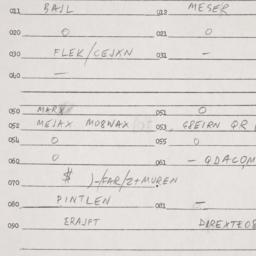 011 BAJL 012 MESER
020 0 021 0
030 FLEK/CEJXN 031 –
040 –
050 MARX 051 0
052 MEJAX MOBWAX 053 GBEIRN QR
054 0 055 0
060 0 061 – QDACOM
070 $ )-/FAR/2+MUREN
080 PINTLEN 081 –
090 ERAJFT DIREXTEOB